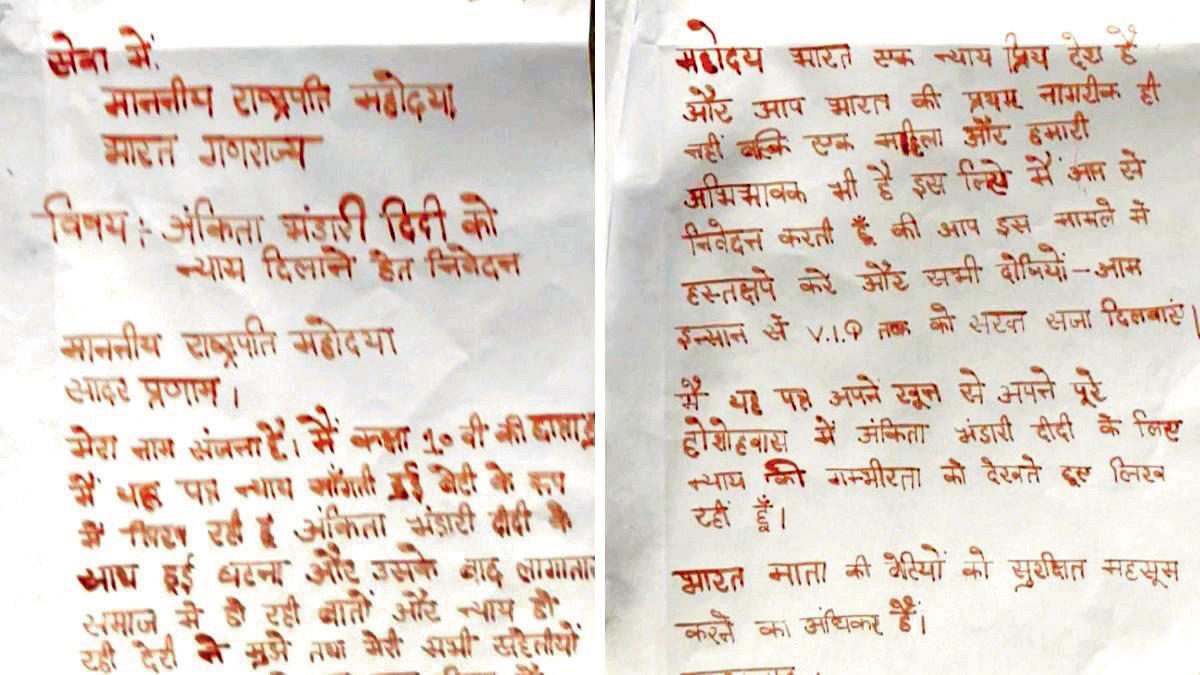 सेवा में,
माननीय राष्ट्रपति महोदया
भारत गणराज्य
विषय :- अंकिता भंडारी दिदी को
न्याय दिलाने हेत निवेदन
माननीय राष्ट्रपति महोदया
सादर प्रणाम।
मेरा नाम संजना हैं। मैं कक्षा 10 वी की छात्रा हूँ
मैं यह पत्र न्याय माँगती हुई बेटी के रूप
में लिख रही हूं अंकिता भंडारी दीदी के
साथ हुई घटना और उसके बाद लागातार
समाज मे हो रही बातों और न्याय हो
रही देरी ने मुझे तथा मेरी सभी सहेतीयों
महोदय भारत एक न्याय प्रिय देश है
और आप भारत की प्रथम नागरीक ही
नहीं बल्कि एक महिला और हमारी
अभिभावक भी है इस लिये मैं आप से
निवेदन करती हूँ की आप इस मामले मे
हस्तक्षपे करे और सभी दोषियों - आम
इन्सान से V.I.P तक को सख्त सजा दिलवाएं।
मै यह पत्र अपनें खून से अपने पूरे
होशोहवास में अंकिता भंडारी दीदी के लिए
न्याय की गम्भीरता को देखते हुए लिख
रहीं हूँ।
भारत माता की बेटियों को सुरक्षित महसूस
करनें का अधिकर हैं।